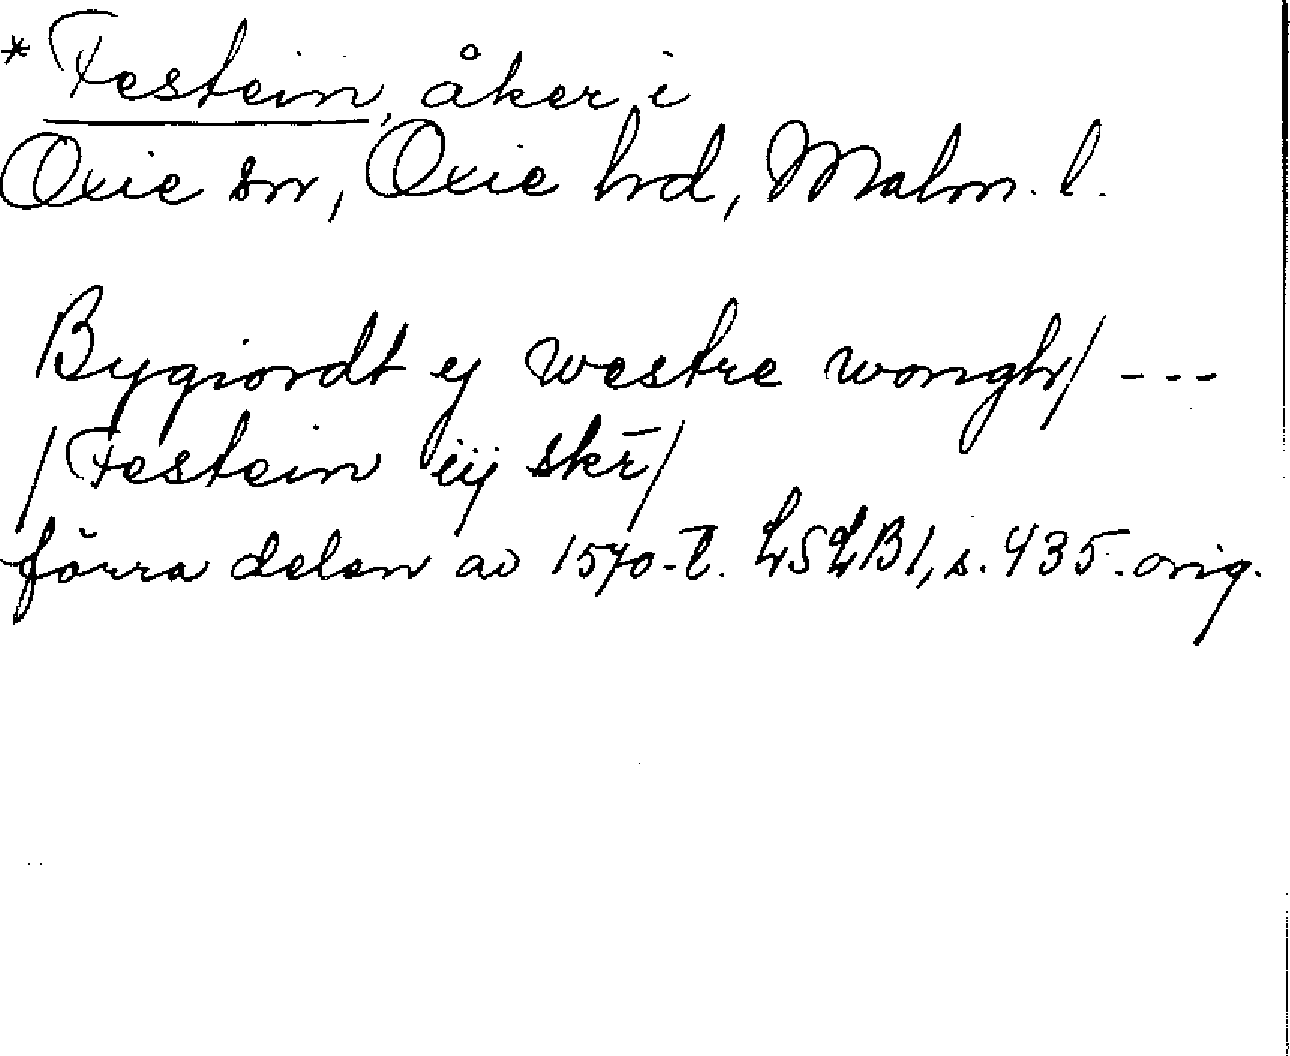 * Festein, åker i
Oxie sn, Oxie hd, Malm. l.
Bygiordt ej westre wongh/ ---
/Festein iij skr̄/
förra delen av 1570-t. LSLB1, s. 435. orig.